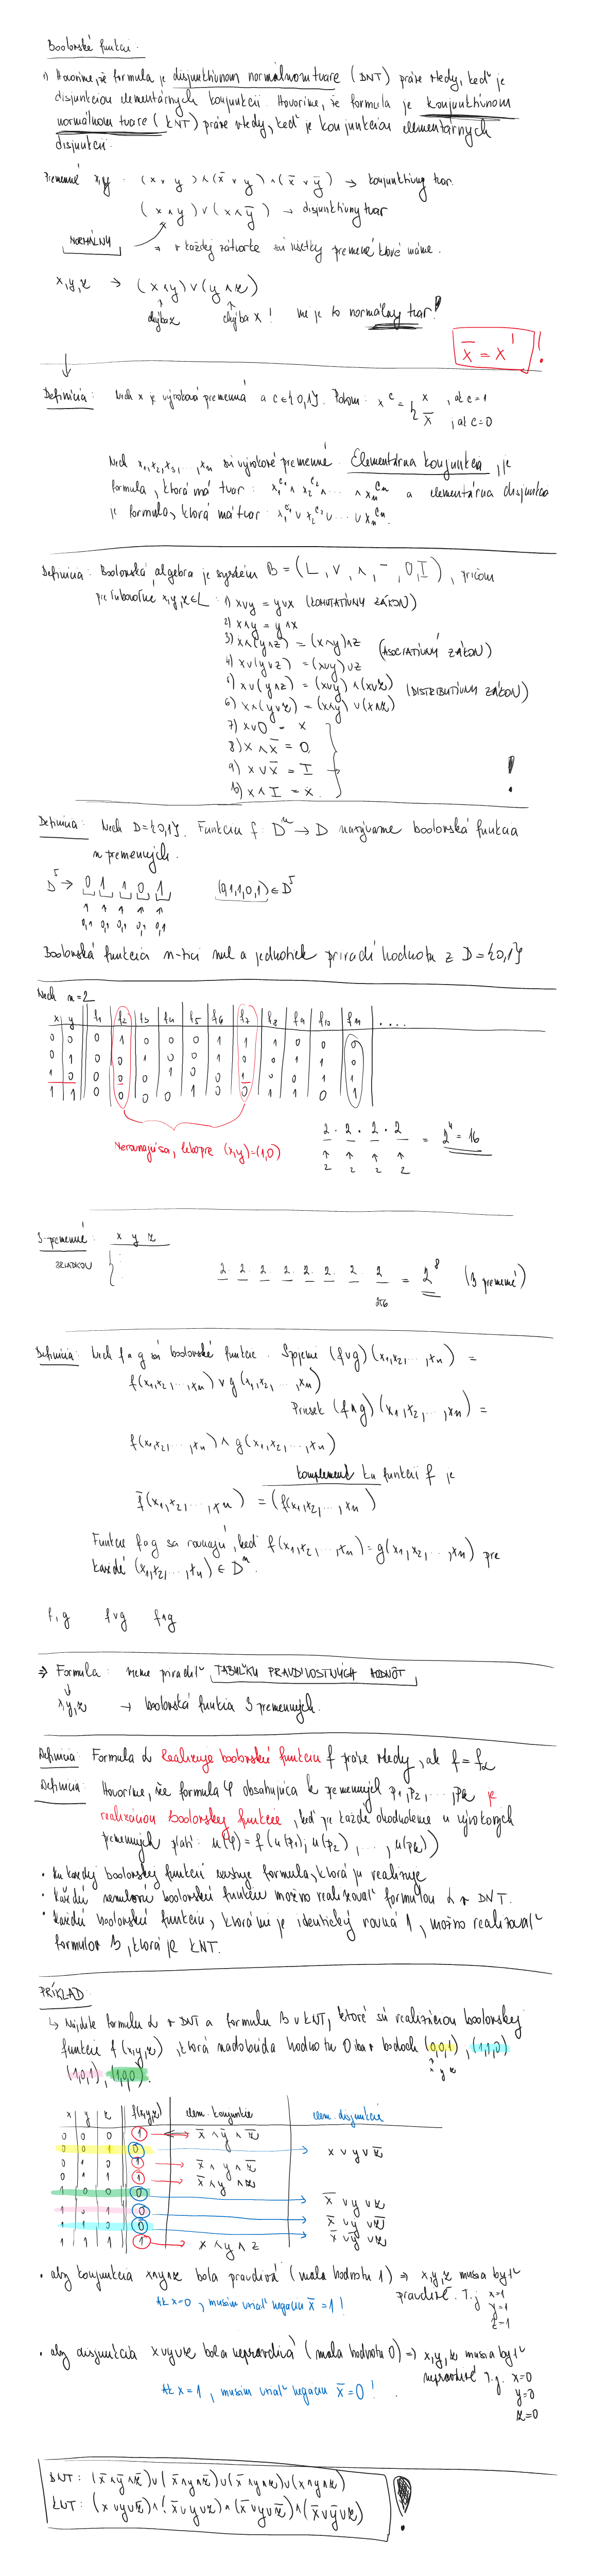 Boolovské funkcie.
1) Hovoríme, že formula je disjunktívnom normálnom tvare (DNT) práve vtedy, keď je
disjunkciou elementárnych konjunkcií. Hovoríme, že formula je konjunktívnom
normálnom tvare (KNT) práve vtedy, keď je konjunkciou elementárnych
disjunkcií.
Premenné x,y. (x ∨ y) ∧ (x̅ ∨ y) ∧ (x̅ ∨ y̅) → konjunktívny tvar.
(x ∧ y) ∨ (x ∧ y̅) → disjunktívny tvar
NORMÁLNY → v každej zátvorke sú všetky premenné ktoré máme.
x,y,z → (x ∧ y) ∨ (y ∧ z)
chýba z chýba x! nie je to normálny tvar!
x̅ = x' !
Definícia: Nech x je výroková premenná a c∈{0,1}. Potom: x^c = { x , ak c=1
x̅ , ak c=0
Nech x₁,x₂,x₃,...,xₙ sú výrokové premenné. Elementárna konjunkcia, je
formula, ktorá má tvar: x₁^c₁ ∧ x₂^c₂ ∧ ... ∧ xₙ^cₙ a elementárna disjunkcia
je formula, ktorá má tvar: x₁^c₁ ∨ x₂^c₂ ∨ ... ∨ xₙ^cₙ.
Definícia: Boolovská algebra je systém B = (L, ∨, ∧, ¯, 0, I), pričom
pre ľubovoľné x,y,z∈L: 1) x∨y = y∨x (KOMUTATÍVNY ZÁKON)
2) x∧y = y∧x
3) x∧(y∧z) = (x∧y)∧z (ASOCIATÍVNY ZÁKON)
4) x∨(y∨z) = (x∨y)∨z
5) x∨(y∧z) = (x∨y)∧(x∨z) (DISTRIBUTÍVNY ZÁKON)
6) x∧(y∨z) = (x∧y)∨(x∧z)
7) x∨0 = x
8) x∧x̅ = 0
9) x∨x̅ = I !
10) x∧I = x.
Definícia: Nech D={0,1}. Funkciu f: Dⁿ → D nazývame boolovská funkcia
n premenných.
D⁵ → 0 1 1 0 1 (0,1,1,0,1) ∈ D⁵
0,1 0,1 0,1 0,1 0,1
Boolovská funkcia n-tici núl a jednotiek priradí hodnotu z D={0,1}
Nech n=2
x y f₁ f₂ f₃ f₄ f₅ f₆ f₇ f₈ f₉ f₁₀ f₁₁ ....
0 0 0 1 0 0 0 1 1 1 0 0 0
0 1 0 0 1 0 0 1 0 0 0 1 0
1 0 0 0 0 1 0 0 1 0 0 1 1
1 1 0 0 0 0 1 0 0 1 1 0 1
Nerovnajú sa, lebo pre (x,y)=(1,0)
2 · 2 · 2 · 2 = 2⁴ = 16
2 2 2 2
3-premenné: x y z
8 RIADKOV
2 · 2 · 2 · 2 · 2 · 2 · 2 · 2 = 2⁸ (3 premenné)
256
Definícia: Nech f a g sú boolovské funkcie. Spojení (f∨g)(x₁,x₂,...,xₙ) =
f(x₁,x₂,...,xₙ) ∨ g(x₁,x₂,...,xₙ)
Priesek (f∧g)(x₁,x₂,...,xₙ) =
f(x₁,x₂,...,xₙ) ∧ g(x₁,x₂,...,xₙ)
komplement ku funkcii f je
f̅(x₁,x₂,...,xₙ) = (f(x₁,x₂,...,xₙ)
Funkcie f a g sa rovnajú, keď f(x₁,x₂,...,xₙ) = g(x₁,x₂,...,xₙ) pre
každé (x₁,x₂,...,xₙ) ∈ Dⁿ.
f, g f∨g f∧g
⇒ Formula: vieme priradiť TABUĽKU PRAVDIVOSTNÝCH HODNÔT
x,y,z → boolovská funkcia 3 premenných.
Definícia: Formula α realizuje boolovskú funkciu f práve vtedy, ak f = fα
Definícia: Hovoríme, že formula φ obsahujúca k premenných p₁, p₂, ..., pk je
realizáciou Boolovskej funkcie, keď pre každé ohodnotenie u výrokových
premenných platí: u(φ) = f(u(p₁), u(p₂), ..., u(pk))
• Ku každej boolovskej funkcii existuje formula, ktorá ju realizuje
• Každú nenulovú boolovskú funkciu možno realizovať formulou α v DNT.
• Každú boolovskú funkciu, ktorá nie je identicky rovná 1, možno realizovať
formulou B, ktorá je KNT.
PRÍKLAD
↳ Nájdite formulu α v DNT a formulu B v KNT, ktoré sú realizáciou boolovskej
funkcie f(x,y,z), ktorá nadobúda hodnotu 0 iba v bodoch (0,0,1), (1,1,0)
x y z
(1,0,1), (1,0,0).
x y z f(x,y,z) elem. konjunkcie elem. disjunkcie
0 0 0 1 x̅ ∧ y̅ ∧ z̅
0 0 1 0 x ∨ y ∨ z̅
0 1 0 1 x̅ ∧ y ∧ z̅
0 1 1 1 x̅ ∧ y ∧ z
1 0 0 0 x̅ ∨ y ∨ z
1 0 1 0 x̅ ∨ y ∨ z̅
1 1 0 0 x̅ ∨ y̅ ∨ z
1 1 1 1 x ∧ y ∧ z
• aby konjunkcia x∧y∧z bola pravdivá (mala hodnotu 1) ⇒ x,y,z musia byť
pravdivé. T.j. x=1
y=1
z=1
Ak x=0, musím vziať negáciu x̅=1!
• aby disjunkcia x∨y∨z bola nepravdivá (mala hodnotu 0) ⇒ x,y,z musia byť
nepravdivé T.j. x=0
y=0
z=0
Ak x=1, musím vziať negáciu x̅=0!
DNT: (x̅∧y̅∧z̅)∨(x̅∧y∧z̅)∨(x̅∧y∧z)∨(x∧y∧z)
KNT: (x∨y∨z̅)∧(x̅∨y∨z)∧(x̅∨y∨z̅)∧(x̅∨y̅∨z) !